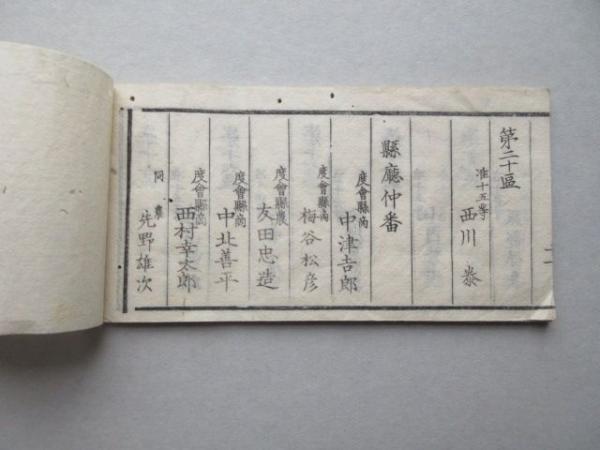 第二十區
准十五等
西川 恭
縣廳仲番
度會縣商
中津吉郎
度會縣商
梅谷松彦
度會縣農
友田忠造
度會縣商
中北善平
度會縣商
西村幸太郎
同 農
先野雄次